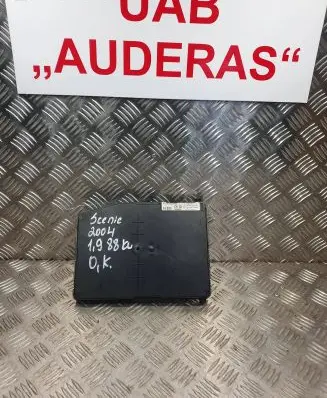 UAB
„AUDERAS“
Scenic
2004
1,9 88kw
O,K.